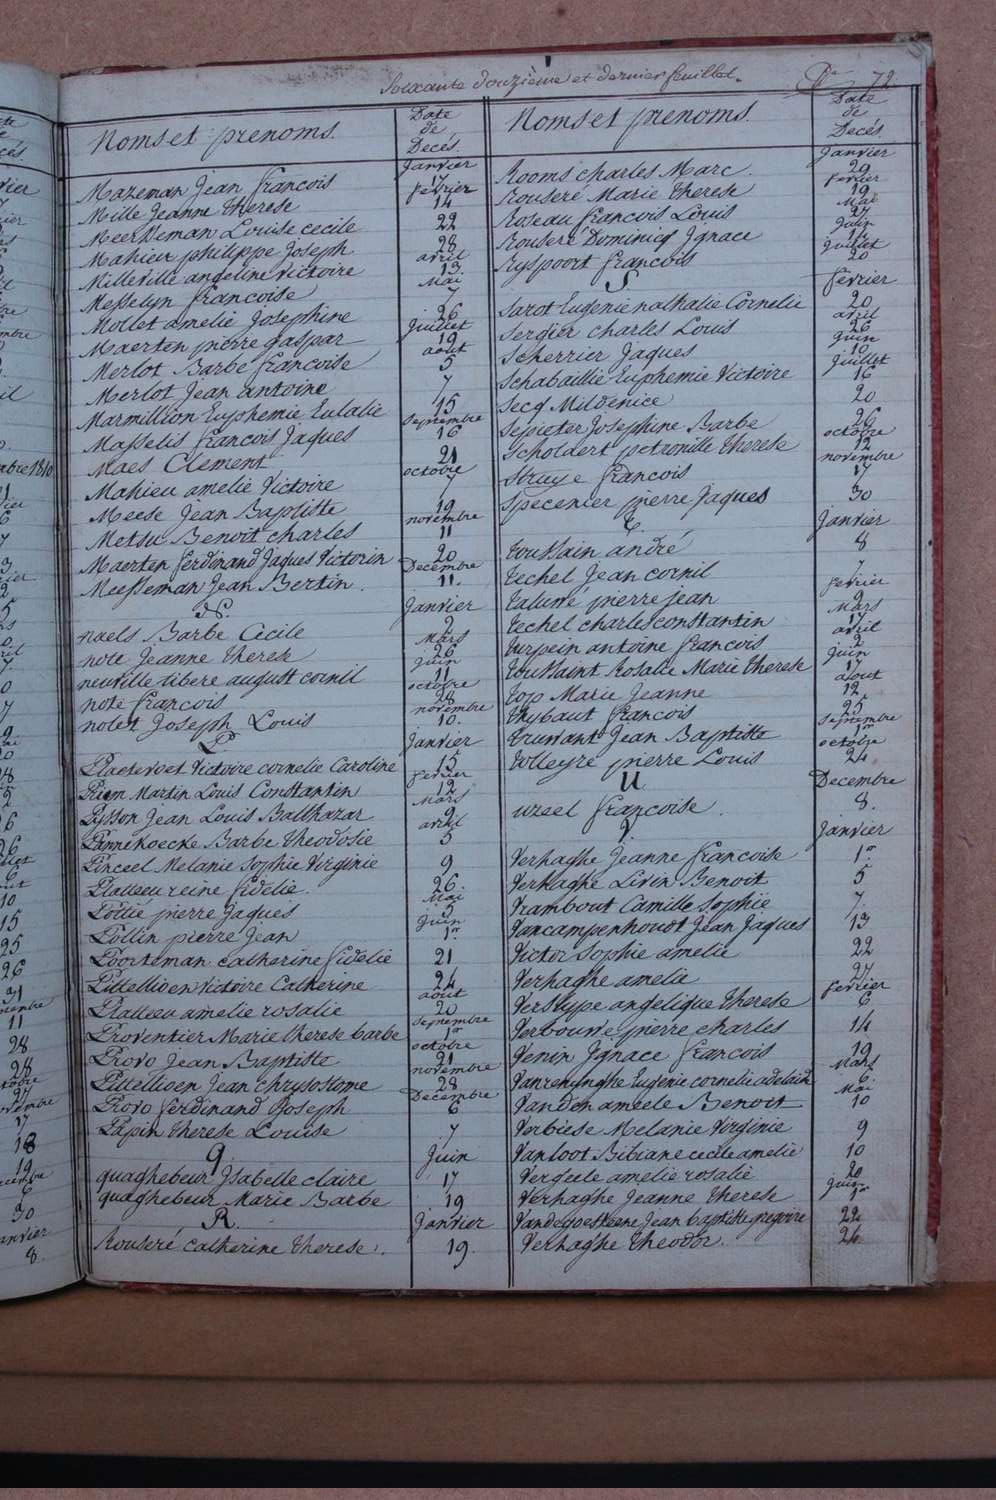 Soixante douzième et dernier feuillet. 72
Noms et prenoms. Date de Decés.
Janvier
Mazeman Jean francois 17
fevrier
Mille Jeanne therese 14
Meersseman Louise cecile 22
Mahieu philippe Joseph 28
avril
Milleville angeline victoire 13
Mai
Messelyn francoise 7
Mollet amelie Josephine 26
Juillet
Maerten pierre gaspar 19
aout
Merlot Barbe francoise 5
Merlot Jean antoine 7
Marmillion Euphemie Eulalie 15
Septembre
Masselis francois Jaques 16
Maes Clement 21
octobre
Mahieu amelie Victoire 7
Meese Jean Baptiste 19
novembre
Metsu Benoit charles 11
Maerten ferdinand Jaques Victorin 20
Decembre
Meesseman Jean Bertin. 11.
N.
Janvier
naels Barbe Cecile 2
Mars
note Jeanne therese 26
Juin
neuville libere august cornil 11
octobre
note francois 28
novembre
notet Joseph Louis 10.
P
Janvier
Plaetevoet Victoire cornelie Caroline 15
fevrier
Priem Martin Louis Constantin 12
Mars
Pysson Jean Louis Balthazar 9
avril
Pannekoecke Barbe theodosie 5
Pinceel Melanie Sophie Virginie 9
Platteeu reine fidelie. 26.
Mai
Pottié pierre Jaques 5
Juin
Pollin pierre Jean 1er
Poortman catherine fidelie 21
Pittellioen Victoire Catherine 24
aout
Platteeu amelie rosalie 20
Septembre
Proventier Marie therese barbe 1er
octobre
Provo Jean Baptiste 21
novembre
Pittellioen Jean chrysostome 28
Decembre
Provo ferdinand Joseph 6
Papin therese Louise 7
q
Juin
quaghebeur Isabelle claire 17
quaghebeur Marie Barbe 19
R.
Janvier
Rouseré catherine therese. 19.
Noms et prenoms. Date de Decés
Janvier
Rooms charles Marc. 29
fevrier
Rouseré Marie therese 19
Mai
Roseau francois Louis 27
Juin
Rouseré Dominicq Ignace 14
Juillet
Ryspoort francois 20
S
fevrier
Sarot Eugenie nathalie Cornelie 20
avril
Sergier charles Louis 26
Juin
Scherrier Jaques 10
Juillet
Schabaillie Euphemie Victoire 16
Secq Mildenice 20
Sepieter Josephine Barbe 26
octobre
Scholdert petronille therese 12
novembre
Struye francois 17
Specenier pierre Jaques 30
T.
Janvier
toussain andré 8
techel Jean cornil 7
fevrier
taluwé pierre Jean 9
Mars
techel charles constantin 17
avril
turpein antoine francois 2
Juin
toussaint Rosalie Marie therese 17
aout
top Marie Jeanne 12
thybaut francois 25
Septembre
truwant Jean Baptiste 1er
octobre
tolleyre pierre Louis 24
U
Decembre
uzeel francoise. 8.
V.
Janvier
Verhaghe Jeanne francoise 1er
Verhaghe Livin Benoit 5
Vrambout Camille Sophie 7.
Vancampenhoudt Jean Jaques 13
Victor Sophie amelie 22
Verhaghe amelie 27
fevrier
Verstype angelique therese 6
Verbouwe pierre charles 14
Venin Ignace francois 19
Mars
Vanreninghe Eugenie cornelie adelaide 6
Mai
Vanden ameele Benoit 10
Verbiese Melanie Virginie 9
Vanloot Bibiane cecile amelie 10
Vergeele amelie rosalie 20
Juin
Verhaghe Jeanne therese 1er
Vandewoesteene Jean baptiste gregoire 22
Verhaghe theodor. 24